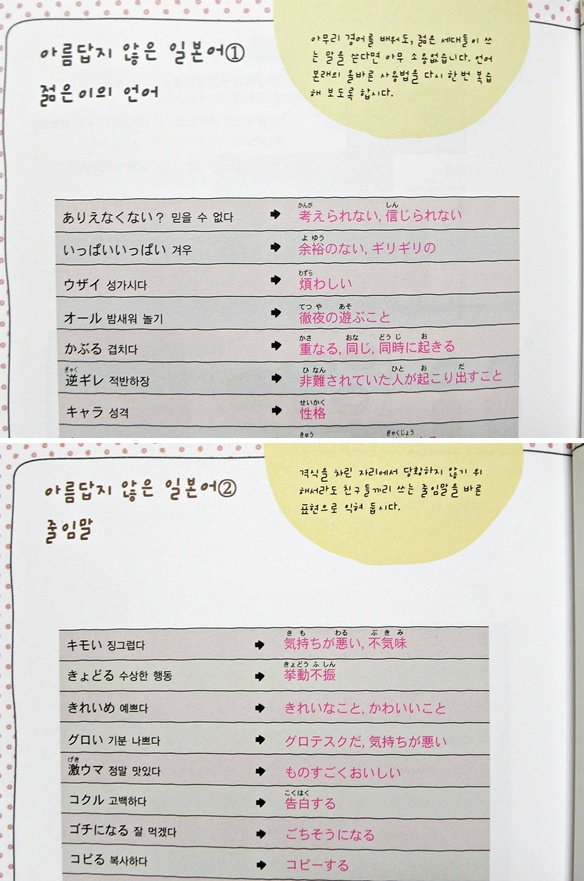 아름답지 않은 일본어①
젊은이의 언어
아무리 경어를 배워도, 젊은 세대들이 쓰
는 말을 쓴다면 아무 소용없습니다. 언어
본래의 올바른 사용법을 다시 한번 복습
해 보도록 합시다.
ありえなくない? 믿을 수 없다 ➡ 考えられない, 信じられない
いっぱいいっぱい 겨우 ➡ 余裕のない, ギリギリの
ウザイ 성가시다 ➡ 煩わしい
オール 밤새워 놀기 ➡ 徹夜の遊ぶこと
かぶる 겹치다 ➡ 重なる, 同じ, 同時に起きる
逆ギレ 적반하장 ➡ 非難されていた人が起こり出すこと
キャラ 성격 ➡ 性格
아름답지 않은 일본어②
줄임말
격식을 차린 자리에서 당황하지 않기 위
해서라도 친구들끼리 쓰는 줄임말을 바른
표현으로 익혀 둡시다.
キモい 징그럽다 ➡ 気持ちが悪い, 不気味
きょどる 수상한 행동 ➡ 挙動不振
きれいめ 예쁘다 ➡ きれいなこと, かわいいこと
グロい 기분 나쁘다 ➡ グロテスクだ, 気持ちが悪い
激ウマ 정말 맛있다 ➡ ものすごくおいしい
コクル 고백하다 ➡ 告白する
ゴチになる 잘 먹겠다 ➡ ごちそうになる
コピる 복사하다 ➡ コピーする